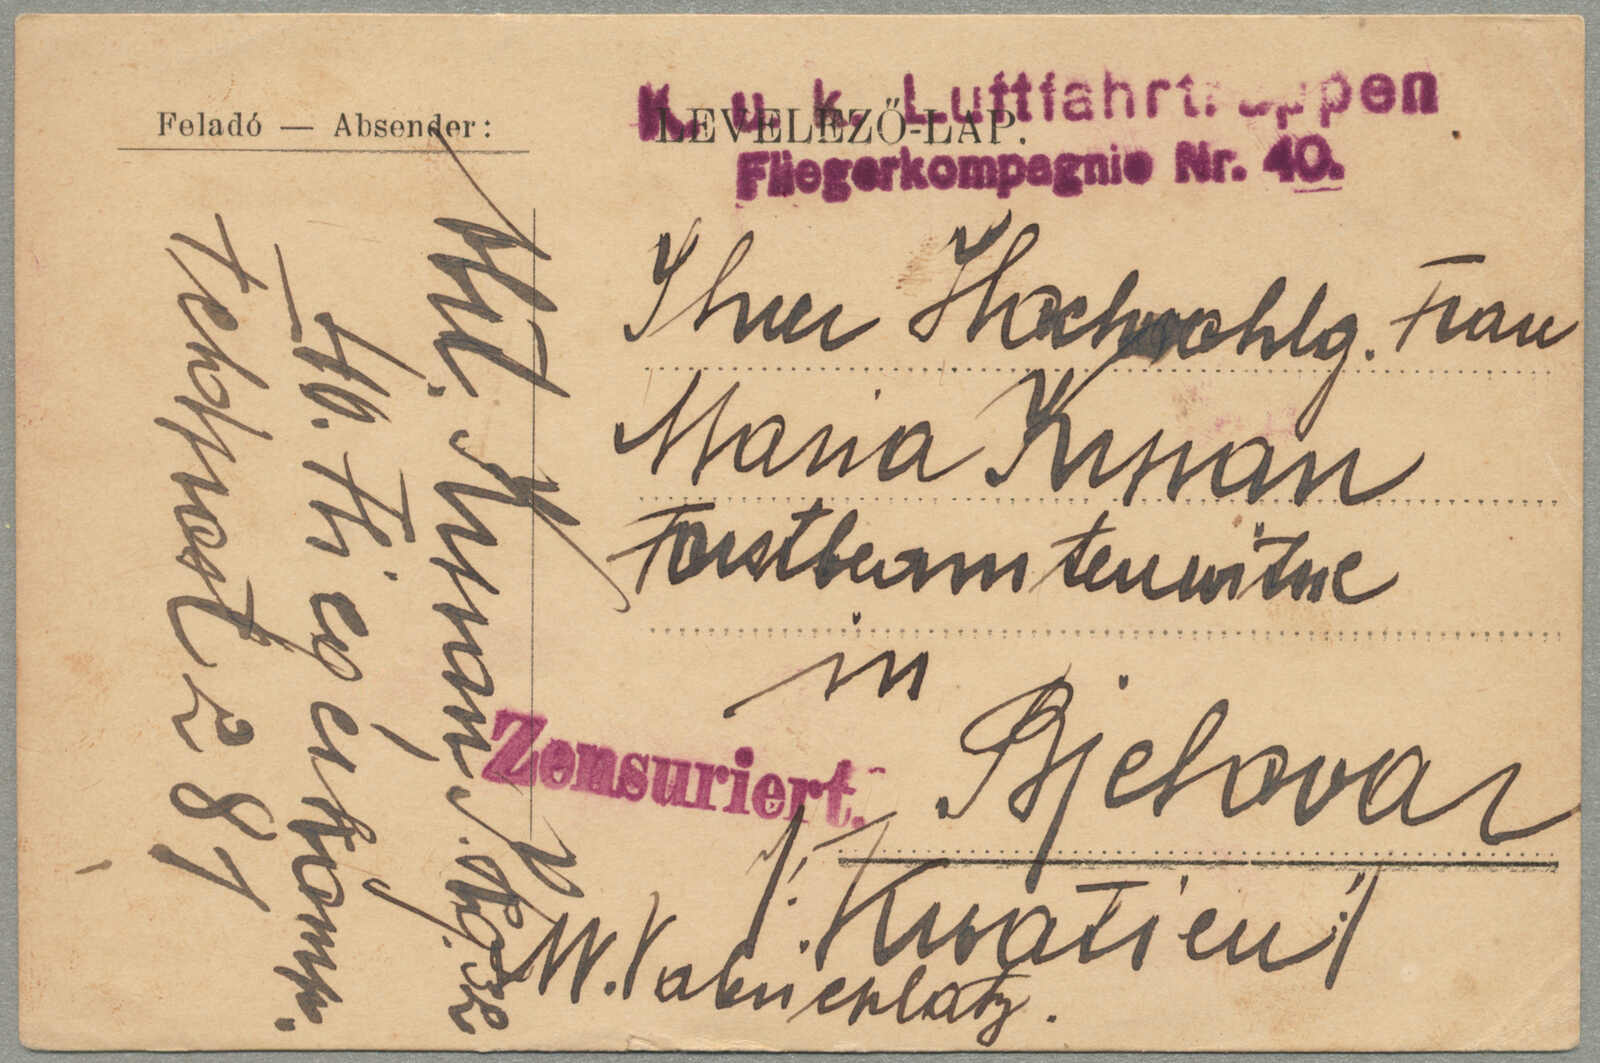 Feladó — Absender:
LEVELEZŐ-LAP.
K. u. k. Luftfahrtruppen
Fliegerkompagnie Nr. 40.
Ihrer Hochwohlg. Frau
Maria Kussan
Forstbeamtenwitwe
in
Bjelovar
/: Kroatien :/
W. Fabriksplatz.
Zensuriert.
40. Fliegerkomp.
Feldpost 281